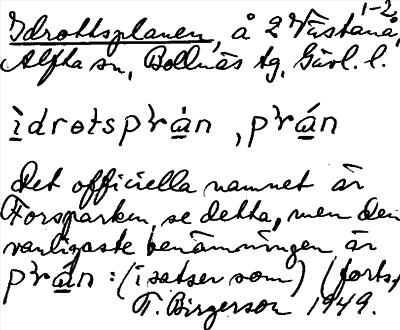 Idrottsplanen, å 2 Västanå 1-2,
Alfta sn, Bollnäs tg, Gävl. l.
ìdrɵtspʹràn , pʹrán
Det officiella namnet är
Forsparken, se detta, men den
vanligaste benämningen är
pʹrán : (i satser som) (forts.)
T. Birgerson 1949.